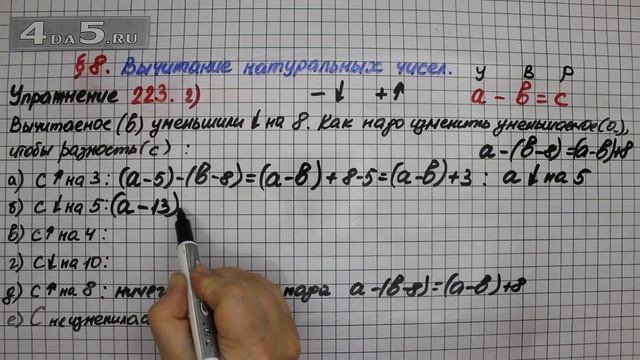 4DA5.RU
§ 8. Вычитание натуральных чисел.
У В Р
Упражнение 223. г) - ↓ + ↑ a - в = c
Вычитаемое (в) уменьшили ↓ на 8. Как надо изменить уменьшаемое (а),
чтобы разность (с) : a-(в-8)=(a-в)+8
а) с ↑ на 3 : (a-5)-(в-8)=(a-в)+8-5=(a-в)+3 : a ↓ на 5
б) с ↓ на 5: (a-13)
в) с ↑ на 4 :
г) с ↓ на 10 :
д) с ↑ на 8 : a-(в-8)=(a-в)+8
е) С не